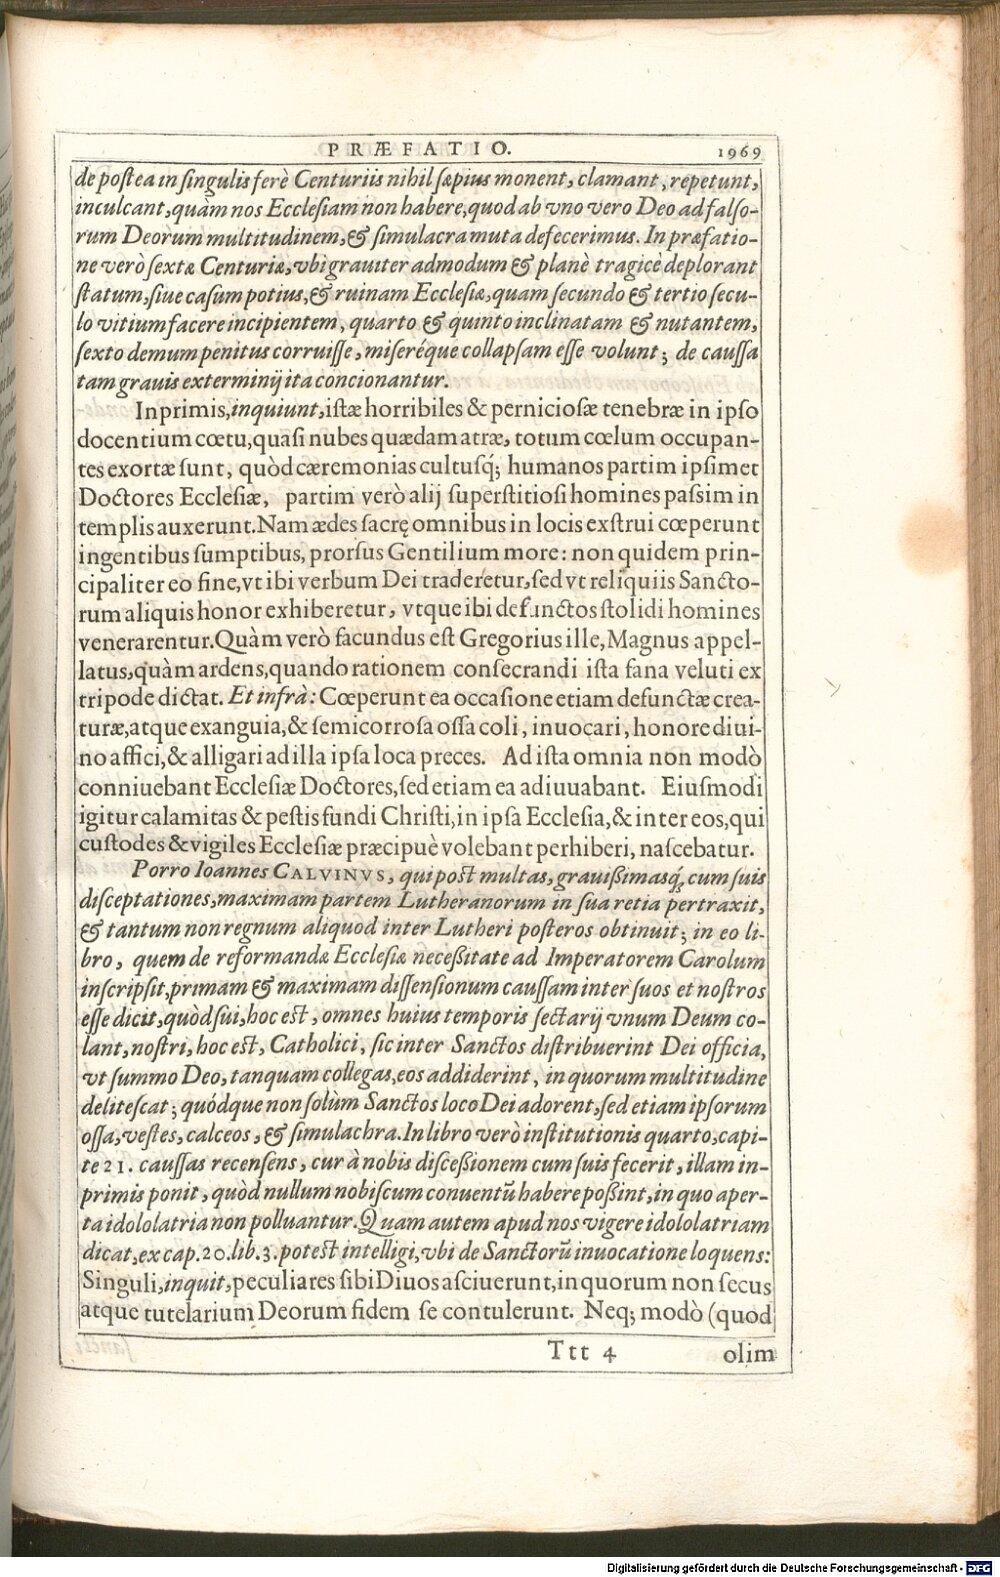 PRÆFATIO. 1969
de postea in singulis ferè Centuriis nihil sæpius monent, clamant, repetunt,
inculcant, quàm nos Ecclesiam non habere, quod ab vno vero Deo ad falso-
rum Deorum multitudinem, & simulacra muta defecerimus. In præfatio-
ne verò sextæ Centuriæ, vbi grauiter admodum & planè tragicè deplorant
statum, siue casum potius, & ruinam Ecclesiæ, quam secundo & tertio secu-
lo vitium facere incipientem, quarto & quinto inclinatam & nutantem,
sexto demum penitus corruisse, miseréque collapsam esse volunt; de caussa
tam grauis exterminij ita concionantur.
Inprimis, inquiunt, istæ horribiles & perniciosæ tenebræ in ipso
docentium cœtu, quasi nubes quædam atræ, totum cœlum occupan-
tes exortæ sunt, quòd cæremonias cultusq́; humanos partim ipsimet
Doctores Ecclesiæ, partim verò alij superstitiosi homines passim in
templis auxerunt. Nam ædes sacrę omnibus in locis exstrui cœperunt
ingentibus sumptibus, prorsus Gentilium more: non quidem prin-
cipaliter eo fine, vt ibi verbum Dei traderetur, sed vt reliquiis Sancto-
rum aliquis honor exhiberetur, vtque ibi defunctos stolidi homines
venerarentur. Quàm verò facundus est Gregorius ille, Magnus appel-
latus, quàm ardens, quando rationem consecrandi ista fana veluti ex
tripode dictat. Et infrà: Cœperunt ea occasione etiam defunctæ crea-
turæ, atque exanguia, & semicorrosa ossa coli, inuocari, honore diui-
no affici, & alligari ad illa ipsa loca preces. Ad ista omnia non modò
conniuebant Ecclesiæ Doctores, sed etiam ea adiuuabant. Eiusmodi
igitur calamitas & pestis fundi Christi, in ipsa Ecclesia, & inter eos, qui
custodes & vigiles Ecclesiæ præcipuè volebant perhiberi, nascebatur.
Porro Ioannes CALVINVS, qui post multas, grauißimasq́; cum suis
disceptationes, maximam partem Lutheranorum in sua retia pertraxit,
& tantum non regnum aliquod inter Lutheri posteros obtinuit; in eo li-
bro, quem de reformandæ Ecclesiæ neceßitate ad Imperatorem Carolum
inscripsit, primam & maximam dissensionum caussam inter suos et nostros
esse dicit, quòd sui, hoc est, omnes huius temporis sectarij vnum Deum co-
lant, nostri, hoc est, Catholici, sic inter Sanctos distribuerint Dei officia,
vt summo Deo, tanquam collegas, eos addiderint, in quorum multitudine
delitescat; quódque non solùm Sanctos loco Dei adorent, sed etiam ipsorum
ossa, vestes, calceos, & simulachra. In libro verò institutionis quarto, capi-
te 21. caussas recensens, cur à nobis disceßionem cum suis fecerit, illam in-
primis ponit, quòd nullum nobiscum conuentũ habere poßint, in quo aper-
ta idololatria non polluantur. Quam autem apud nos vigere idololatriam
dicat, ex cap. 20. lib. 3. potest intelligi, vbi de Sanctorũ inuocatione loquens:
Singuli, inquit, peculiares sibi Diuos asciuerunt, in quorum non secus
atque tutelarium Deorum fidem se contulerunt. Neq; modò (quod
Ttt 4 olim
Digitalisierung gefördert durch die Deutsche Forschungsgemeinschaft - DFG